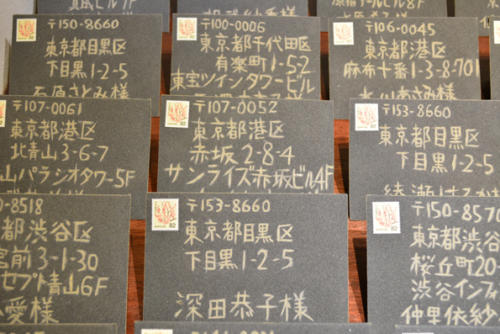 〒150-8660
東京都目黒区
下目黒1-2-5
石原さとみ様
〒100-0006
東京都千代田区
有楽町1-5-2
東宝ツインタワービル
〒106-0045
東京都港区
麻布十番1-3-8-701
水川あさみ様
〒107-0061
東京都港区
北青山3-6-7
山パラシオタワー5F
〒107-0052
東京都港区
赤坂2-8-4
サンライズ赤坂ビル4F
〒153-8660
東京都目黒区
下目黒1-2-5
綾瀬はるか
-8518
都渋谷区
宮前3-1-30
セプト青山6F
愛様
〒153-8660
東京都目黒区
下目黒1-2-5
深田恭子様
〒150-857
東京都渋谷
桜丘町20
渋谷インフ
仲里依紗